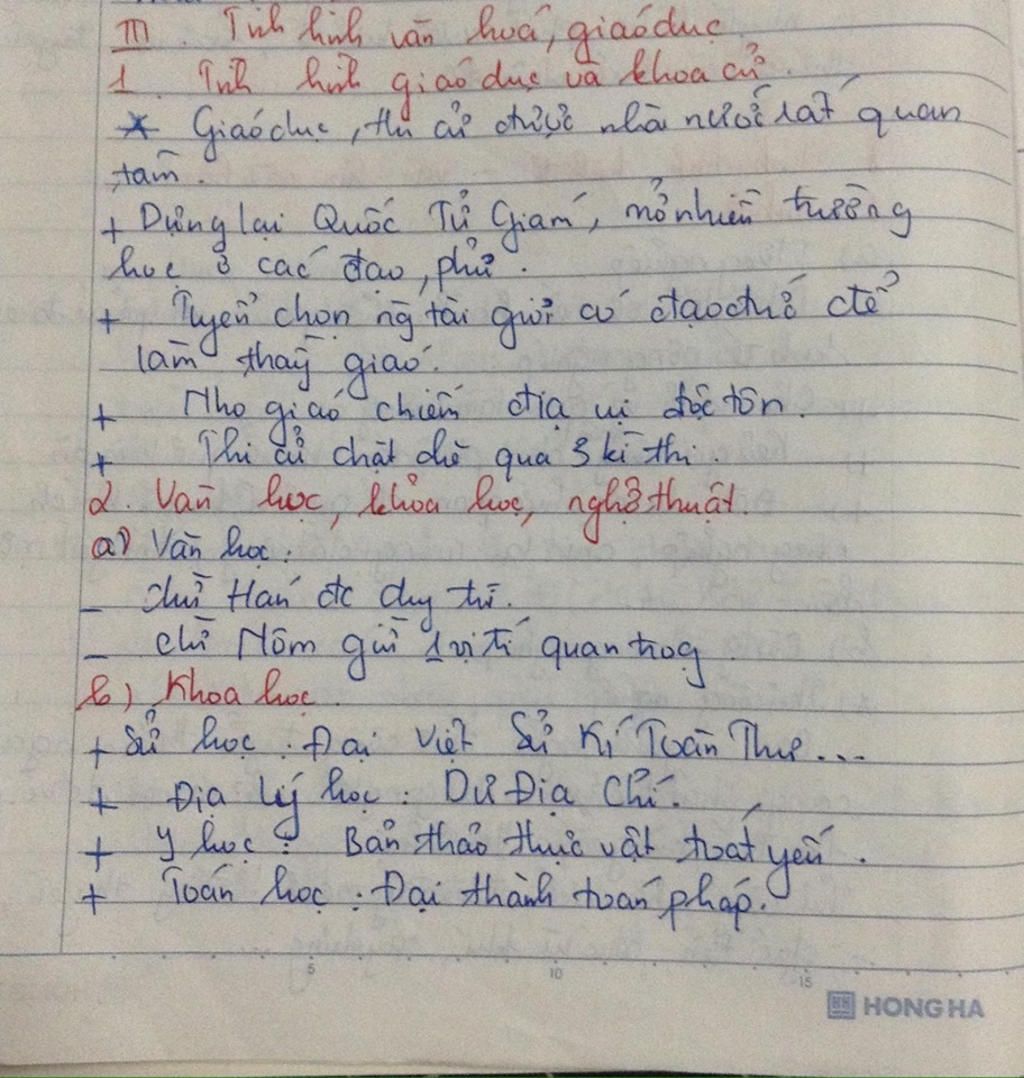 III. Tình hình văn hoá, giáo dục
1. Tình hình giáo dục và khoa cử.
* Giáo dục, thi cử được nhà nước rất quan
tâm.
+ Dựng lại Quốc Tử Giám, mở nhiều trường
học ở các đạo, phủ.
+ Tuyển chọn ng tài giỏi có đạo đức để
làm thầy giáo.
+ Nho giáo chiếm địa vị độc tôn.
+ Thi cử chặt chẽ qua 3 kì thi.
2. Văn học, khoa học, nghệ thuật.
a) Văn học:
- chữ Hán đc duy trì.
- chữ Nôm giữ 1 vị trí quan trog
b) Khoa học.
+ Sử học: Đại Việt Sử Kí Toàn Thư...
+ Địa lý học: Dư Địa Chí.
+ Y học: Bản thảo thực vật toát yếu.
+ Toán học: Đại thành toán pháp.
5 10 15
HH HONG HA